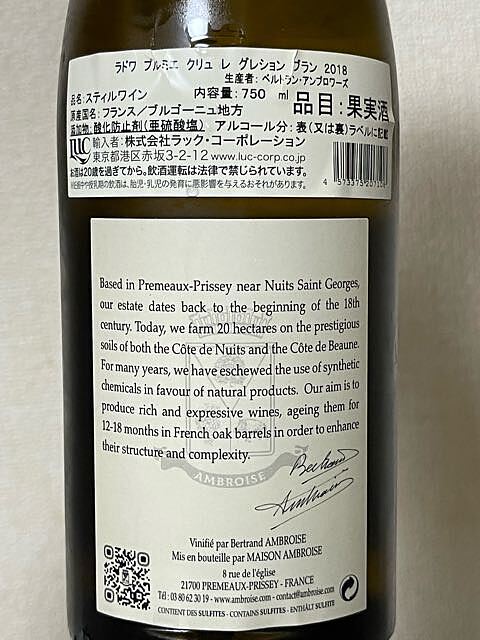 ラドワ プルミエ クリュ レ グレション ブラン 2018
生産者: ベルトラン・アンブロワーズ
品名: スティルワイン 内容量: 750 ml
品目:果実酒
原産国名: フランス/ブルゴーニュ地方
添加物: 酸化防止剤(亜硫酸塩) アルコール分: 表(又は裏)ラベルに記載
LUC 輸入者: 株式会社ラック・コーポレーション
東京都港区赤坂3-2-12 www.luc-corp.co.jp
お酒は20歳を過ぎてから。飲酒運転は法律で禁じられています。
妊娠中や授乳期の飲酒は、胎児・乳児の発育に悪影響を与えるおそれがあります。
Based in Premeaux-Prissey near Nuits Saint Georges,
our estate dates back to the beginning of the 18th
century. Today, we farm 20 hectares on the prestigious
soils of both the Côte de Nuits and the Côte de Beaune.
For many years, we have eschewed the use of synthetic
chemicals in favour of natural products. Our aim is to
produce rich and expressive wines, ageing them for
12-18 months in French oak barrels in order to enhance
their structure and complexity.
AMBROISE
Vinifié par Bertrand AMBROISE
Mis en bouteille par MAISON AMBROISE
8 rue de l'église
21700 PREMEAUX-PRISSEY - FRANCE
Tél : 03 80 62 30 19 - www.ambroise.com - contact@ambroise.com
CONTIENT DES SULFITES - CONTAINS SULFITES - ENTHÄLT SULFITE